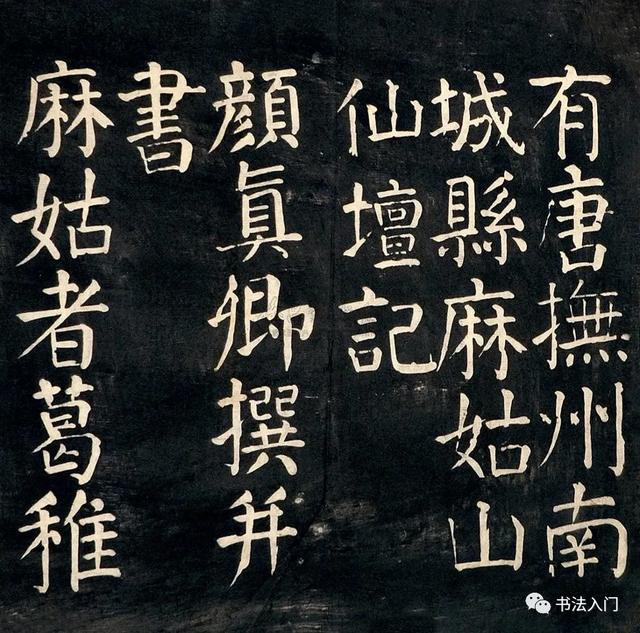 有唐撫州南
城縣麻姑山
仙壇記
顏真卿撰并
書
麻姑者葛稚
书法入门